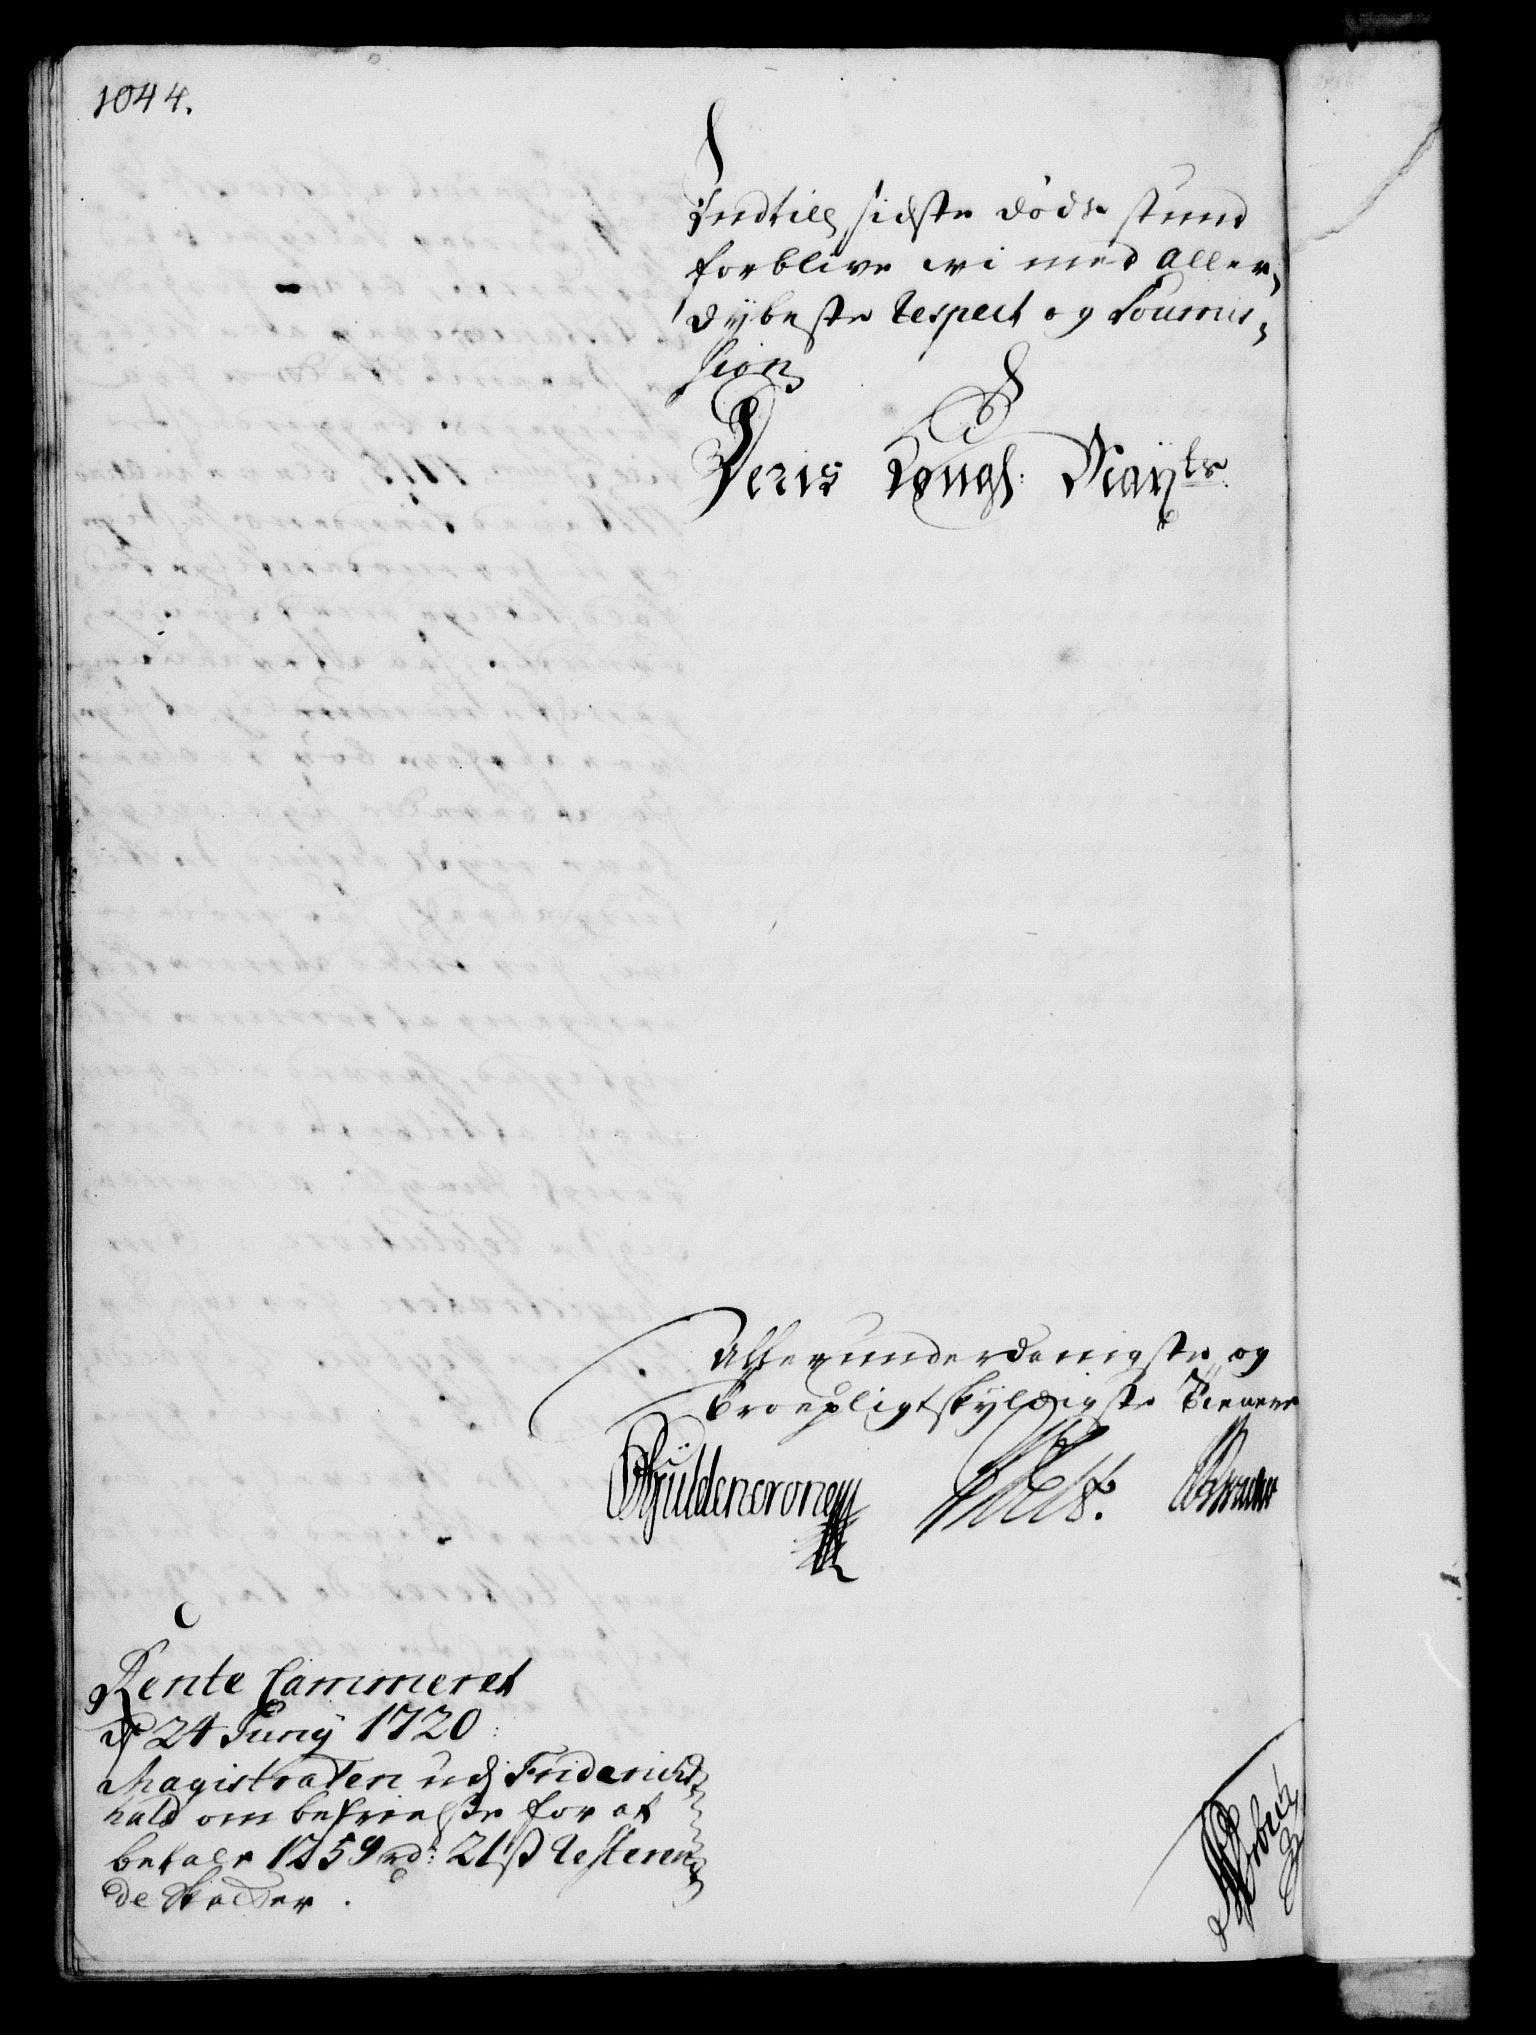 1044.
Indtill sidste døds stund
forblive wi med aller,
dybeste Respect og Soumis,
sion
Deris Kongl: May:ts
Allerunderdanigste og
troepligtskyldigste Tienere
Guldencrone
Rente Cammeret
d 24 Juny 1720:
Magistraten udj Friderichs
hald om befrielse for at
betale 1259 rd: 21 ß Resteren
de Skatter.